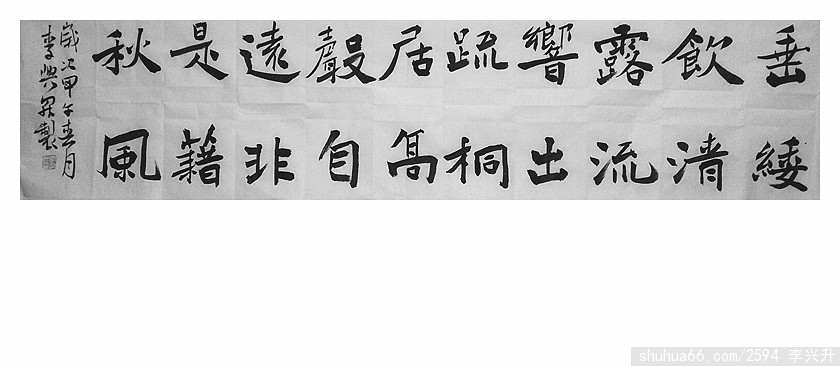 垂緌
飲清
露流
響出
疏桐
居高
聲自
遠非
是藉
秋風
歲次甲午春月
李興昇製
shuhua66.com/2594 李兴升